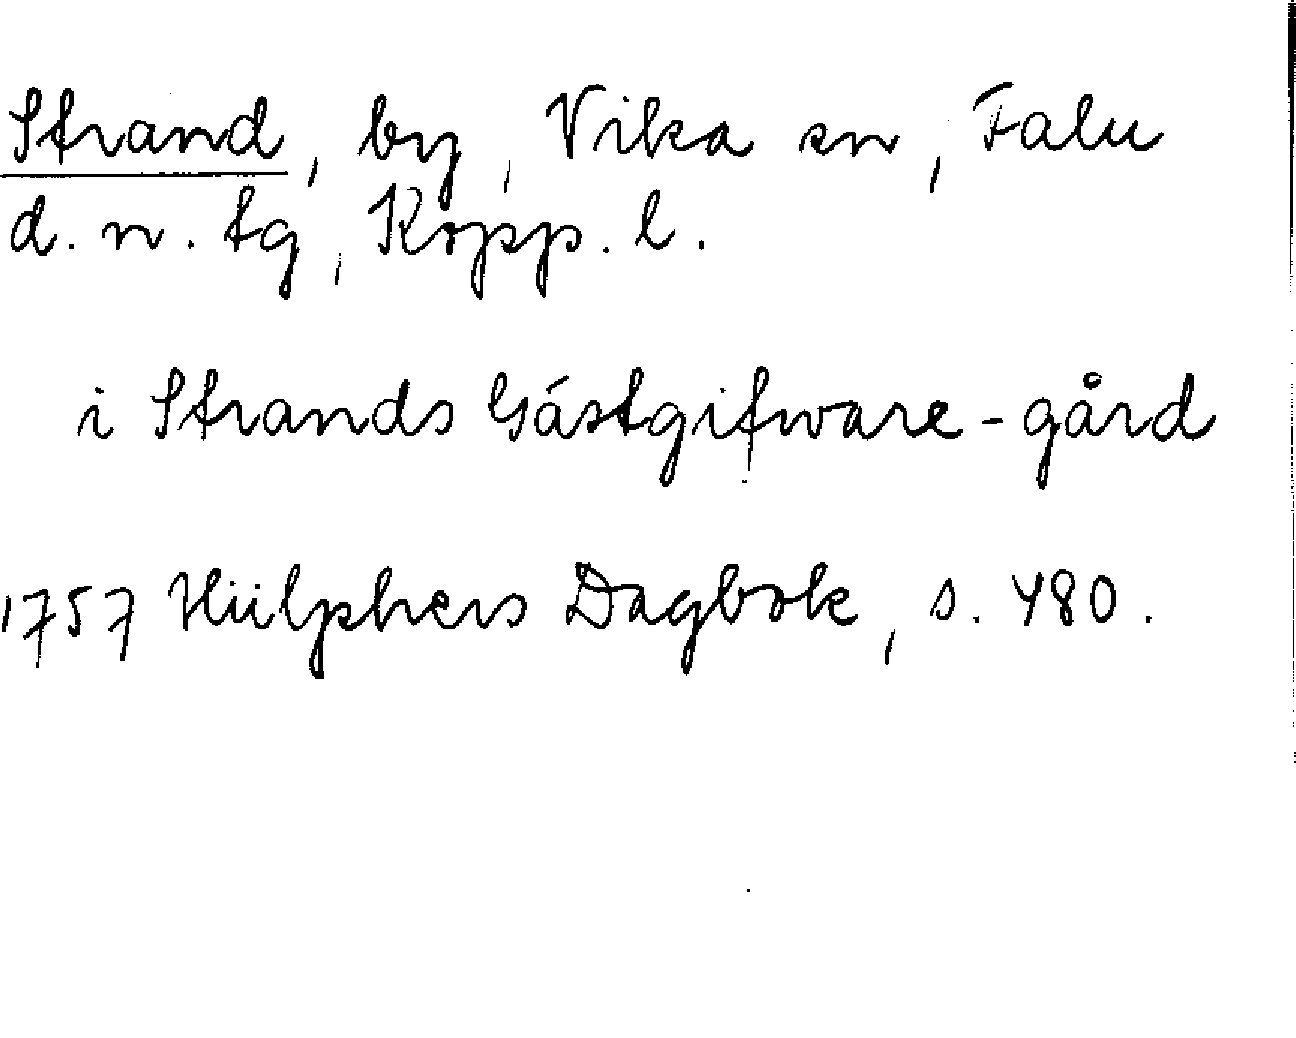 Strand, by, Vika sn, Falu
d. n. tg, Kopp. l.
i Strands Gástgifware-gård
1757 Hülphers Dagbok, s. 480.